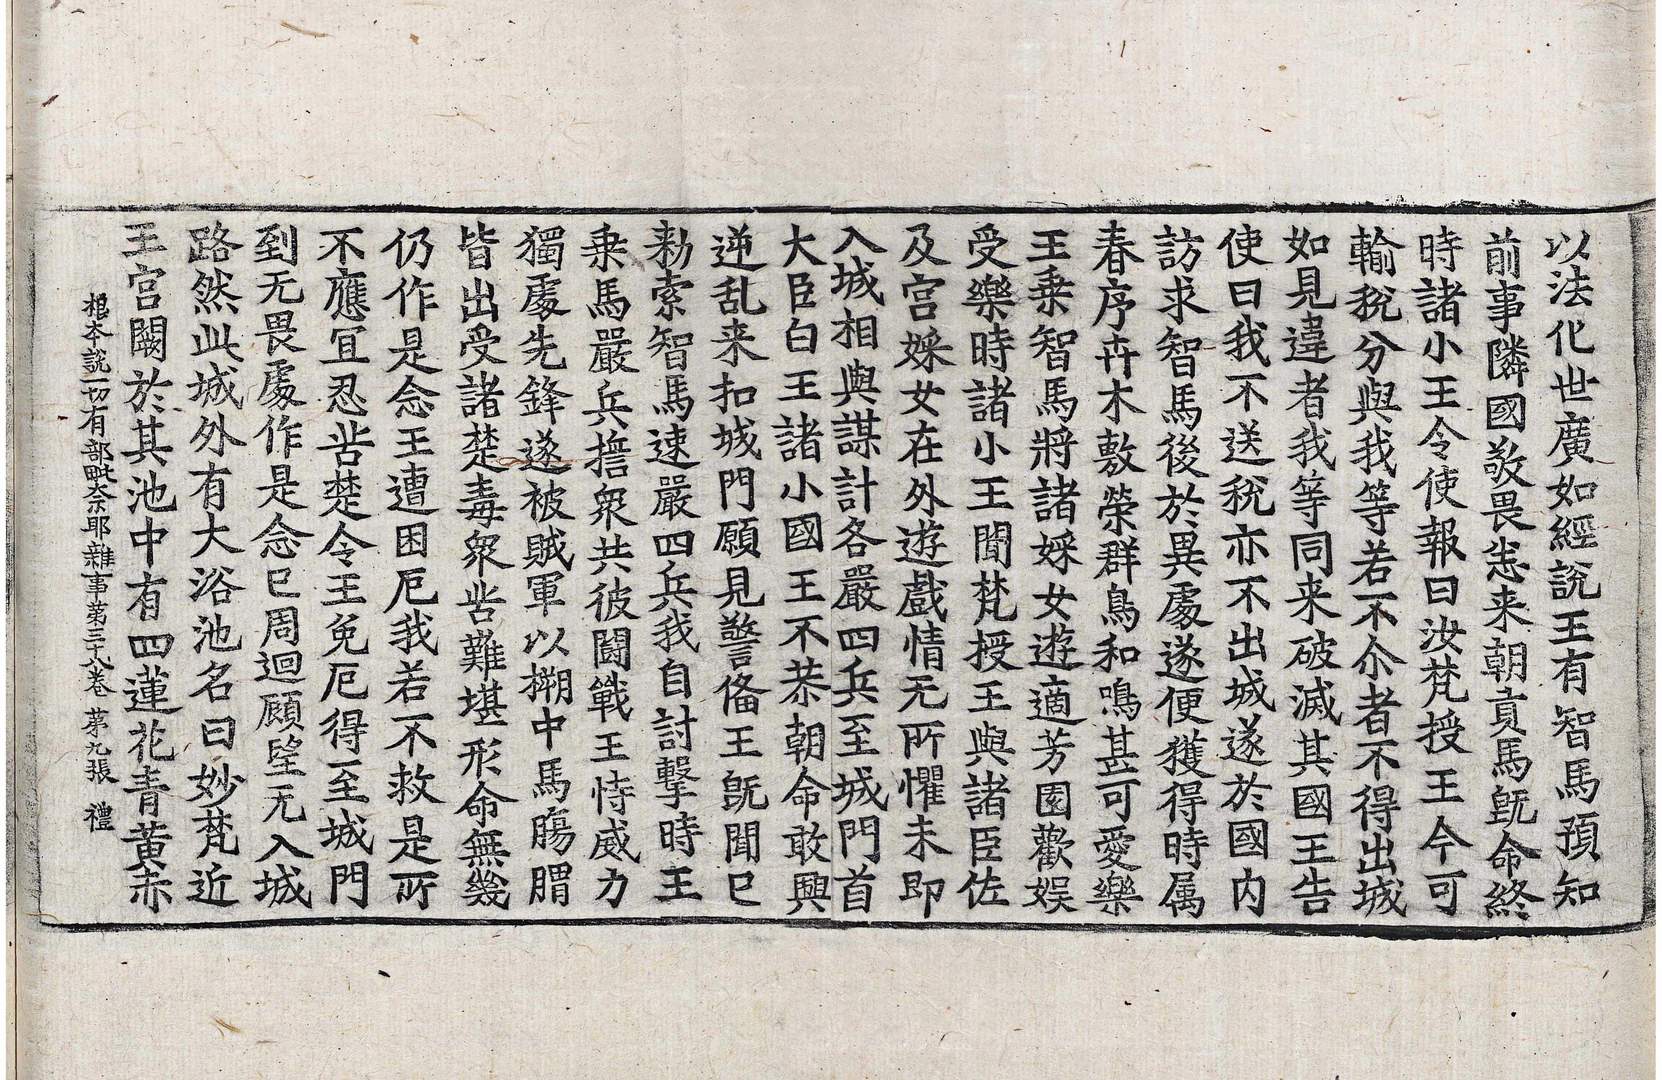 以法化世廣如經說王有智馬預知
前事隣國敬畏悉来朝貢馬旣命終
時諸小王令使報曰汝梵授王今可
輸稅分與我等若不尒者不得出城
如見違者我等同来破滅其國王告
使曰我不送稅亦不出城遂於國内
訪求智馬後於異處遂便獲得時属
春序卉木敷榮群鳥和鳴甚可愛樂
王乗智馬將諸婇女遊適芳園歡娛
受樂時諸小王聞梵授王與諸臣佐
及宮婇女在外遊戲情无所懼未即
入城相與謀計各嚴四兵至城門首
大臣白王諸小國王不恭朝命敢興
逆乱来扣城門願見警俻王旣聞已
勑索智馬速嚴四兵我自討擊時王
乗馬嚴兵擔衆共彼鬪戰王恃威力
獨處先鋒遂被賊軍以槊中馬膓腪
皆出受諸楚毒衆苦難堪形命無幾
仍作是念王遭困厄我若不救是所
不應冝忍苦楚令王免厄得至城門
到无畏處作是念已周迴顧望无入城
路然此城外有大浴池名曰妙梵近
王宮闕於其池中有四蓮花青黃赤
根本說一切有部毗奈耶雜事第三十八卷 第九張 禮